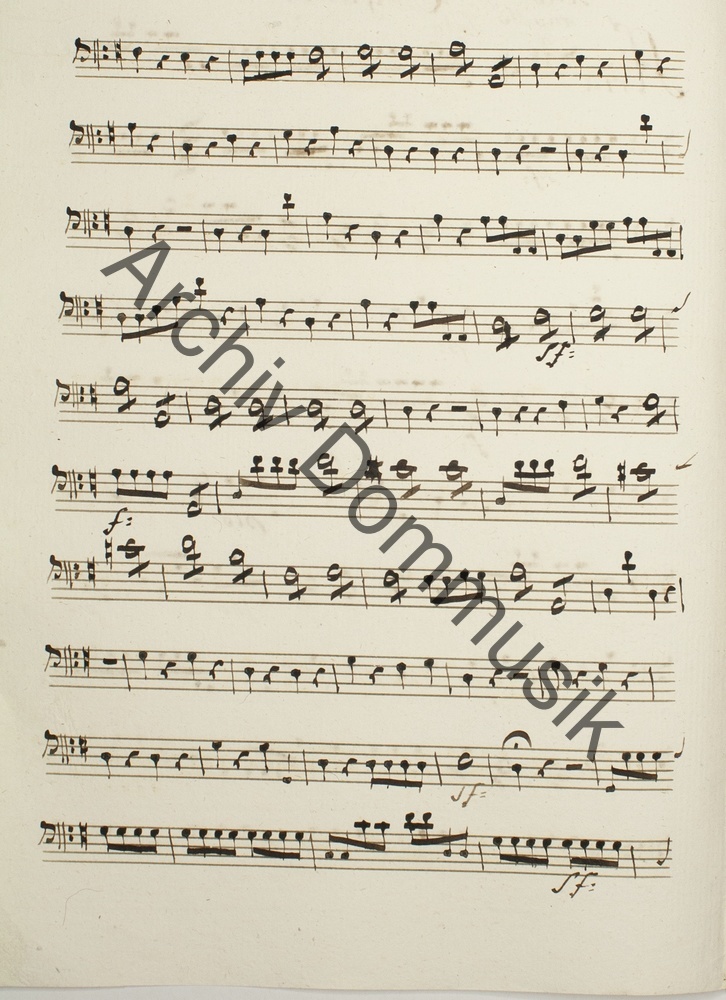 Archiv Dommusik
sf:
f:
sf:
sf: